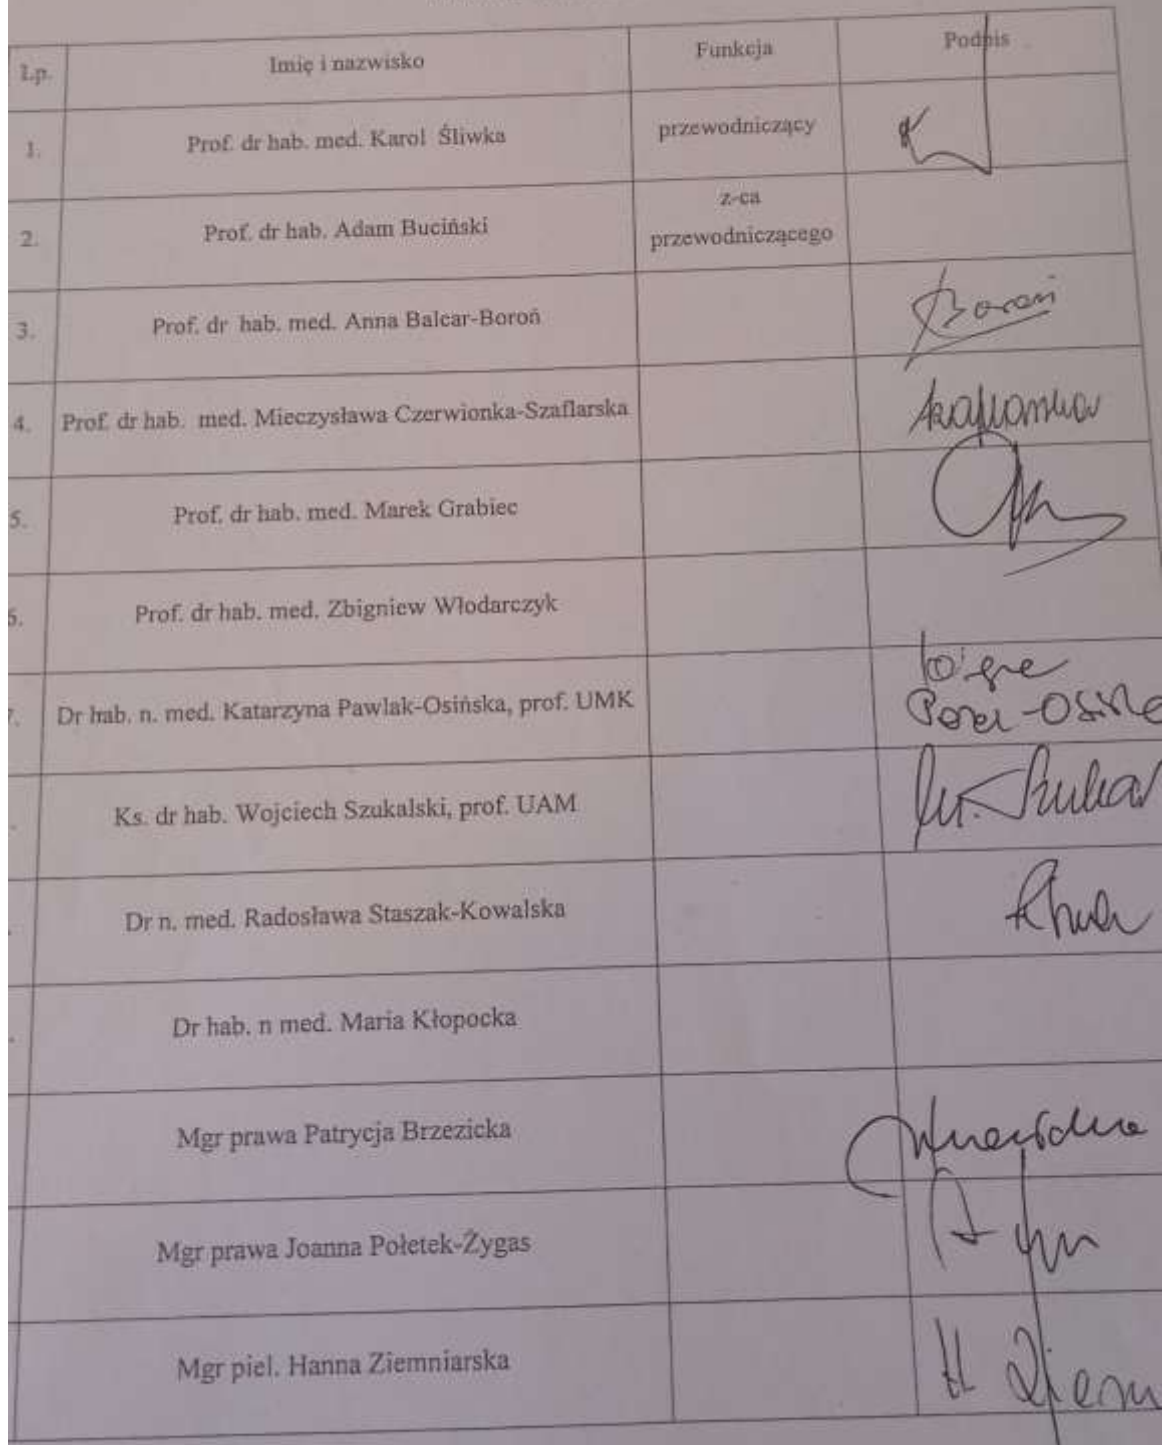 Lp. Imię i nazwisko Funkcja Podpis
1. Prof. dr hab. med. Karol Śliwka przewodniczący
2. Prof. dr hab. Adam Buciński z-ca
przewodniczącego
3. Prof. dr hab. med. Anna Balcar-Boroń Boroń
4. Prof. dr hab. med. Mieczysława Czerwionka-Szaflarska
5. Prof. dr hab. med. Marek Grabiec
Prof. dr hab. med. Zbigniew Włodarczyk
Dr hab. n. med. Katarzyna Pawlak-Osińska, prof. UMK
Ks. dr hab. Wojciech Szukalski, prof. UAM
Dr n. med. Radosława Staszak-Kowalska
Dr hab. n med. Maria Kłopocka
Mgr prawa Patrycja Brzezicka
Mgr prawa Joanna Połetek-Żygas
Mgr piel. Hanna Ziemniarska H Ziem